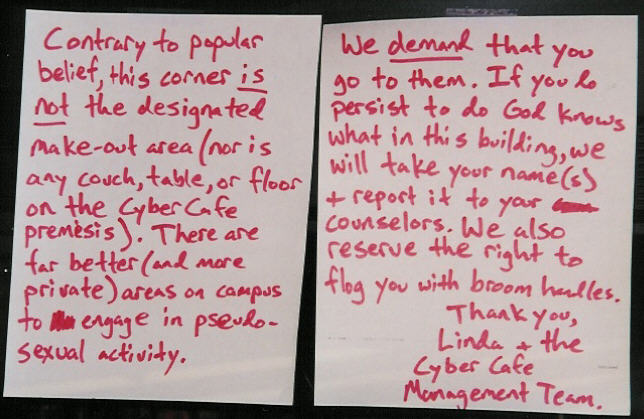 Contrary to popular
belief, this corner is
not the designated
make-out area (nor is
any couch, table, or floor
on the Cyber Cafe
premesis). There are
far better (and more
private) areas on campus
to engage in pseudo-
sexual activity.
We demand that you
go to them. If you do
persist to do God knows
what in this building, we
will take your name(s)
+ report it to your
counselors. We also
reserve the right to
flog you with broom handles.
Thank you,
Linda + the
Cyber Cafe
Management Team.